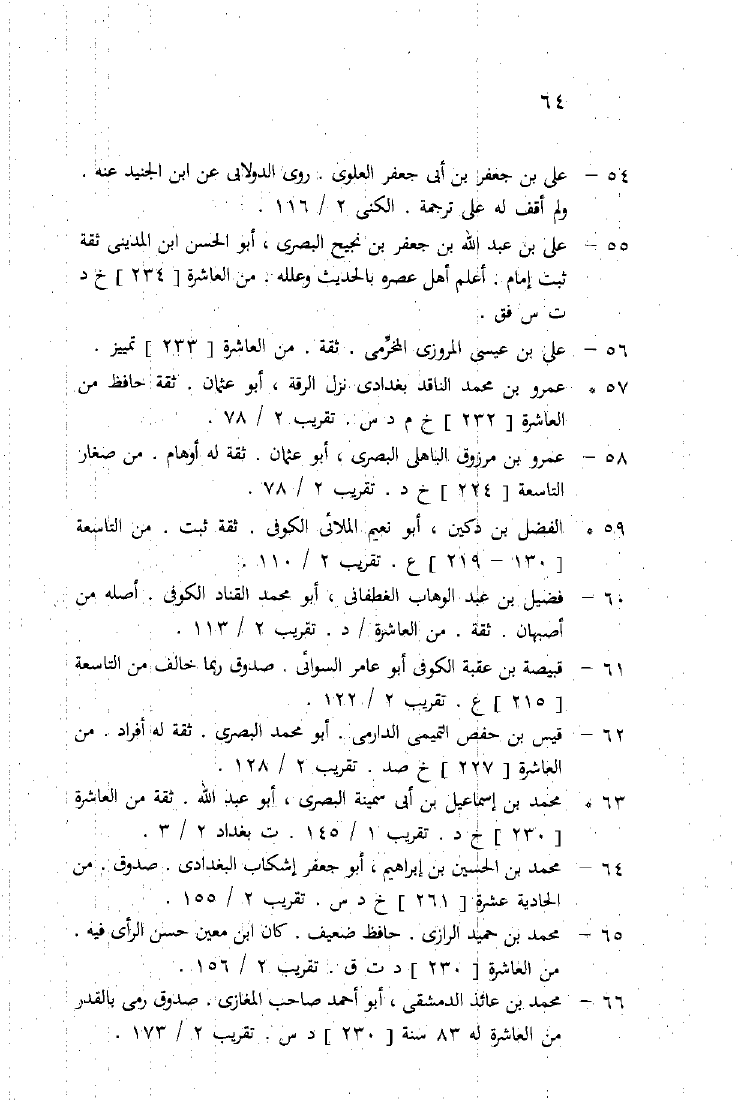 ٦٤
٥٤ – على بن جعفر بن أبى جعفر العلوى . روى الدولابى عن ابن الجنيد عنه .
ولم أقف له على ترجمة . الكنى ٢ / ١١٦ .
٥٥ – على بن عبد الله بن جعفر بن نجيح البصرى ، أبو الحسن ابن المدينى ثقة
ثبت إمام . أعلم أهل عصره بالحديث وعلله . من العاشرة [ ٢٣٤ ] خ د
ت س فق .
٥٦ – على بن عيسى المروزى المخرِّمى . ثقة . من العاشرة [ ٢٣٣ ] تمييز .
٥٧ * عمرو بن محمد الناقد بغدادى نزل الرقة ، أبو عثمان . ثقة حافظ من
العاشرة [ ٢٣٢ ] خ م د س . تقريب ٢ / ٧٨ .
٥٨ – عمرو بن مرزوق الباهلى البصرى ، أبو عثمان . ثقة له أوهام . من صغار
التاسعة [ ٢٢٤ ] خ د . تقريب ٢ / ٧٨ .
٥٩ * الفضل بن دكين ، أبو نعيم الملائى الكوفى . ثقة ثبت . من التاسعة
[ ١٣٠ – ٢١٩ ] ع . تقريب ٢ / ١١٠ .
٦٠ – فضيل بن عبد الوهاب الغطفانى ، أبو محمد القناد الكوفى . أصله من
أصبهان . ثقة . من العاشرة / د . تقريب ٢ / ١١٣ .
٦١ – قبيصة بن عقبة الكوفى أبو عامر السوائى . صدوق ربما خالف من التاسعة
[ ٢١٥ ] ع . تقريب ٢ / ١٢٢ .
٦٢ – قيس بن حفص التميمى الدارمى . أبو محمد البصرى . ثقة له أفراد . من
العاشرة [ ٢٢٧ ] خ صد . تقريب ٢ / ١٢٨ .
٦٣ * محمد بن إسماعيل بن أبى سمينة البصرى ، أبو عبد الله . ثقة من العاشرة
[ ٢٣٠ ] خ د . تقريب ١ / ١٤٥ . ت بغداد ٢ / ٣ .
٦٤ – محمد بن الحسين بن إبراهيم ، أبو جعفر إشكاب البغدادى . صدوق . من
الحادية عشرة [ ٢٦١ ] خ د س . تقريب ٢ / ١٥٥ .
٦٥ – محمد بن حميد الرازى . حافظ ضعيف . كان ابن معين حسن الرأى فيه .
من العاشرة [ ٢٣٠ ] د ت ق . تقريب ٢ / ١٥٦ .
٦٦ – محمد بن عائذ الدمشقى ، أبو أحمد صاحب المغازى . صدوق رمى بالقدر
من العاشرة له ٨٣ سنة [ ٢٣٠ ] د س . تقريب ٢ / ١٧٣ .